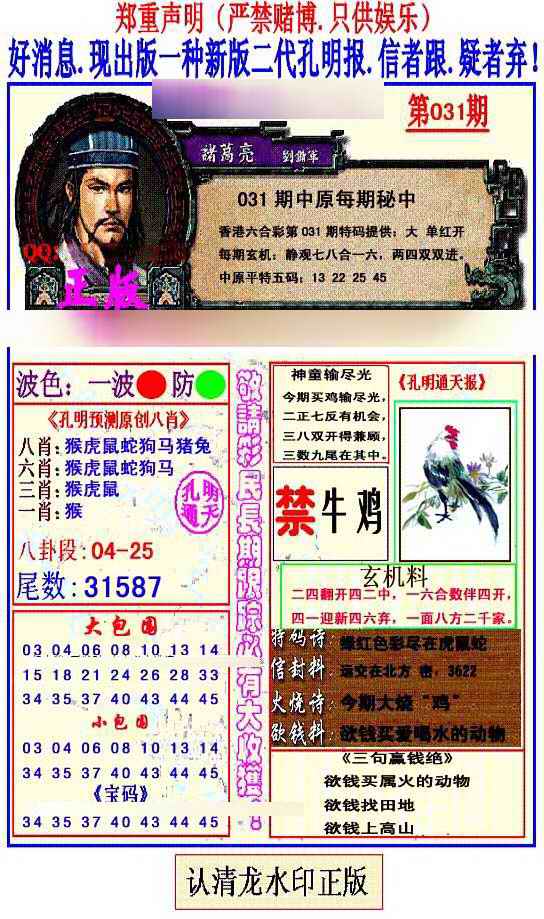 郑重声明（严禁赌博.只供娱乐）
好消息.现出版一种新版二代孔明报.信者跟.疑者弃!
第031期
諸葛亮
031期中原每期秘中
香港六合彩第031期特码提供：大 单红开
每期玄机：静观七八合一六，两四双双进。
中原平特五码：13 22 25 45
QQ:
正版
波色：一波 防
《孔明预测原创八肖》
八肖:猴虎鼠蛇狗马猪兔
六肖:猴虎鼠蛇狗马
三肖:猴虎鼠
一肖:猴
孔明
通天
八卦段:04-25
尾数:31587
大包围
03 04 06 08 10 13 14
15 18 21 24 26 28 33
34 35 37 40 43 44 45
小包围
03 04 06 08 10 13 14
34 35 37 40 43 44 45
《宝码》
34 35 37 40 43 44 45
敬請彩民長期跟踪必有大收獲!
神童输尽光
今期买鸡输尽光，
二正七反有机会，
三八双开得兼顾，
三数九尾在其中。
《孔明通天报》
禁牛鸡
玄机料
二四翻开四二中，一六合数伴四开，
四一迎新四六弃，一面八方二千家。
特码诗：绿红色彩尽在虎鼠蛇
信封料：运交在北方 密，3622
火烧诗：今期大烧“鸡”
欲钱料：欲钱买爱喝水的动物
《三句赢钱绝》
欲钱买属火的动物
欲钱找田地
欲钱上高山
认清龙水印正版